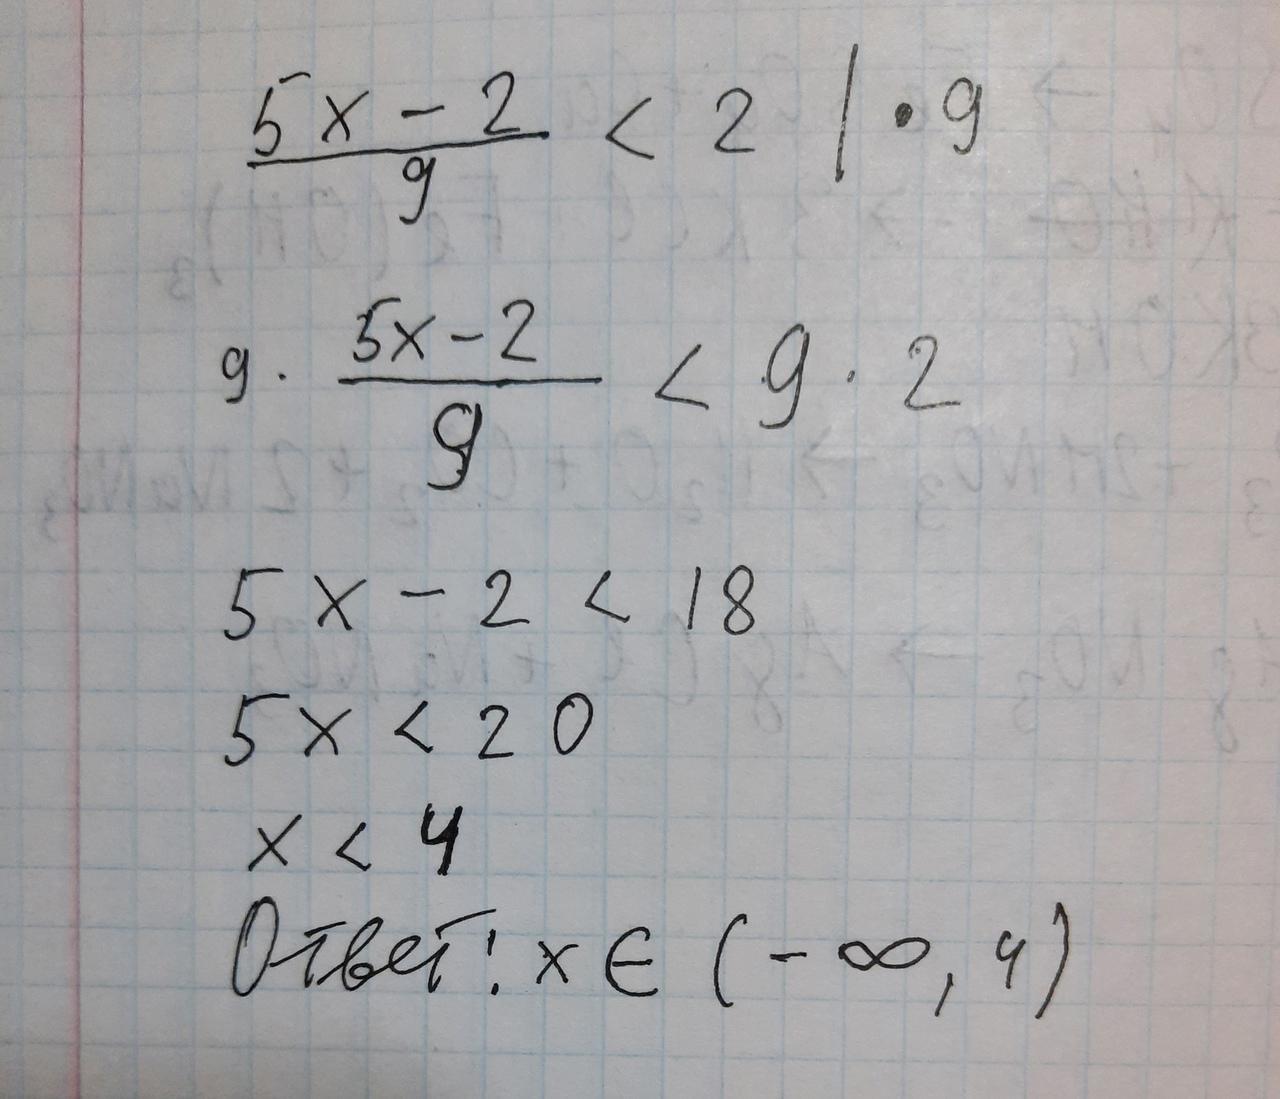 5x - 2 / 9 < 2 | • 9
9 · 5x - 2 / 9 < 9 · 2
5x - 2 < 18
5x < 20
x < 4
Ответ: x ∈ (-∞, 4)